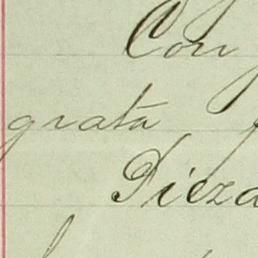 Con
grata
Dieza